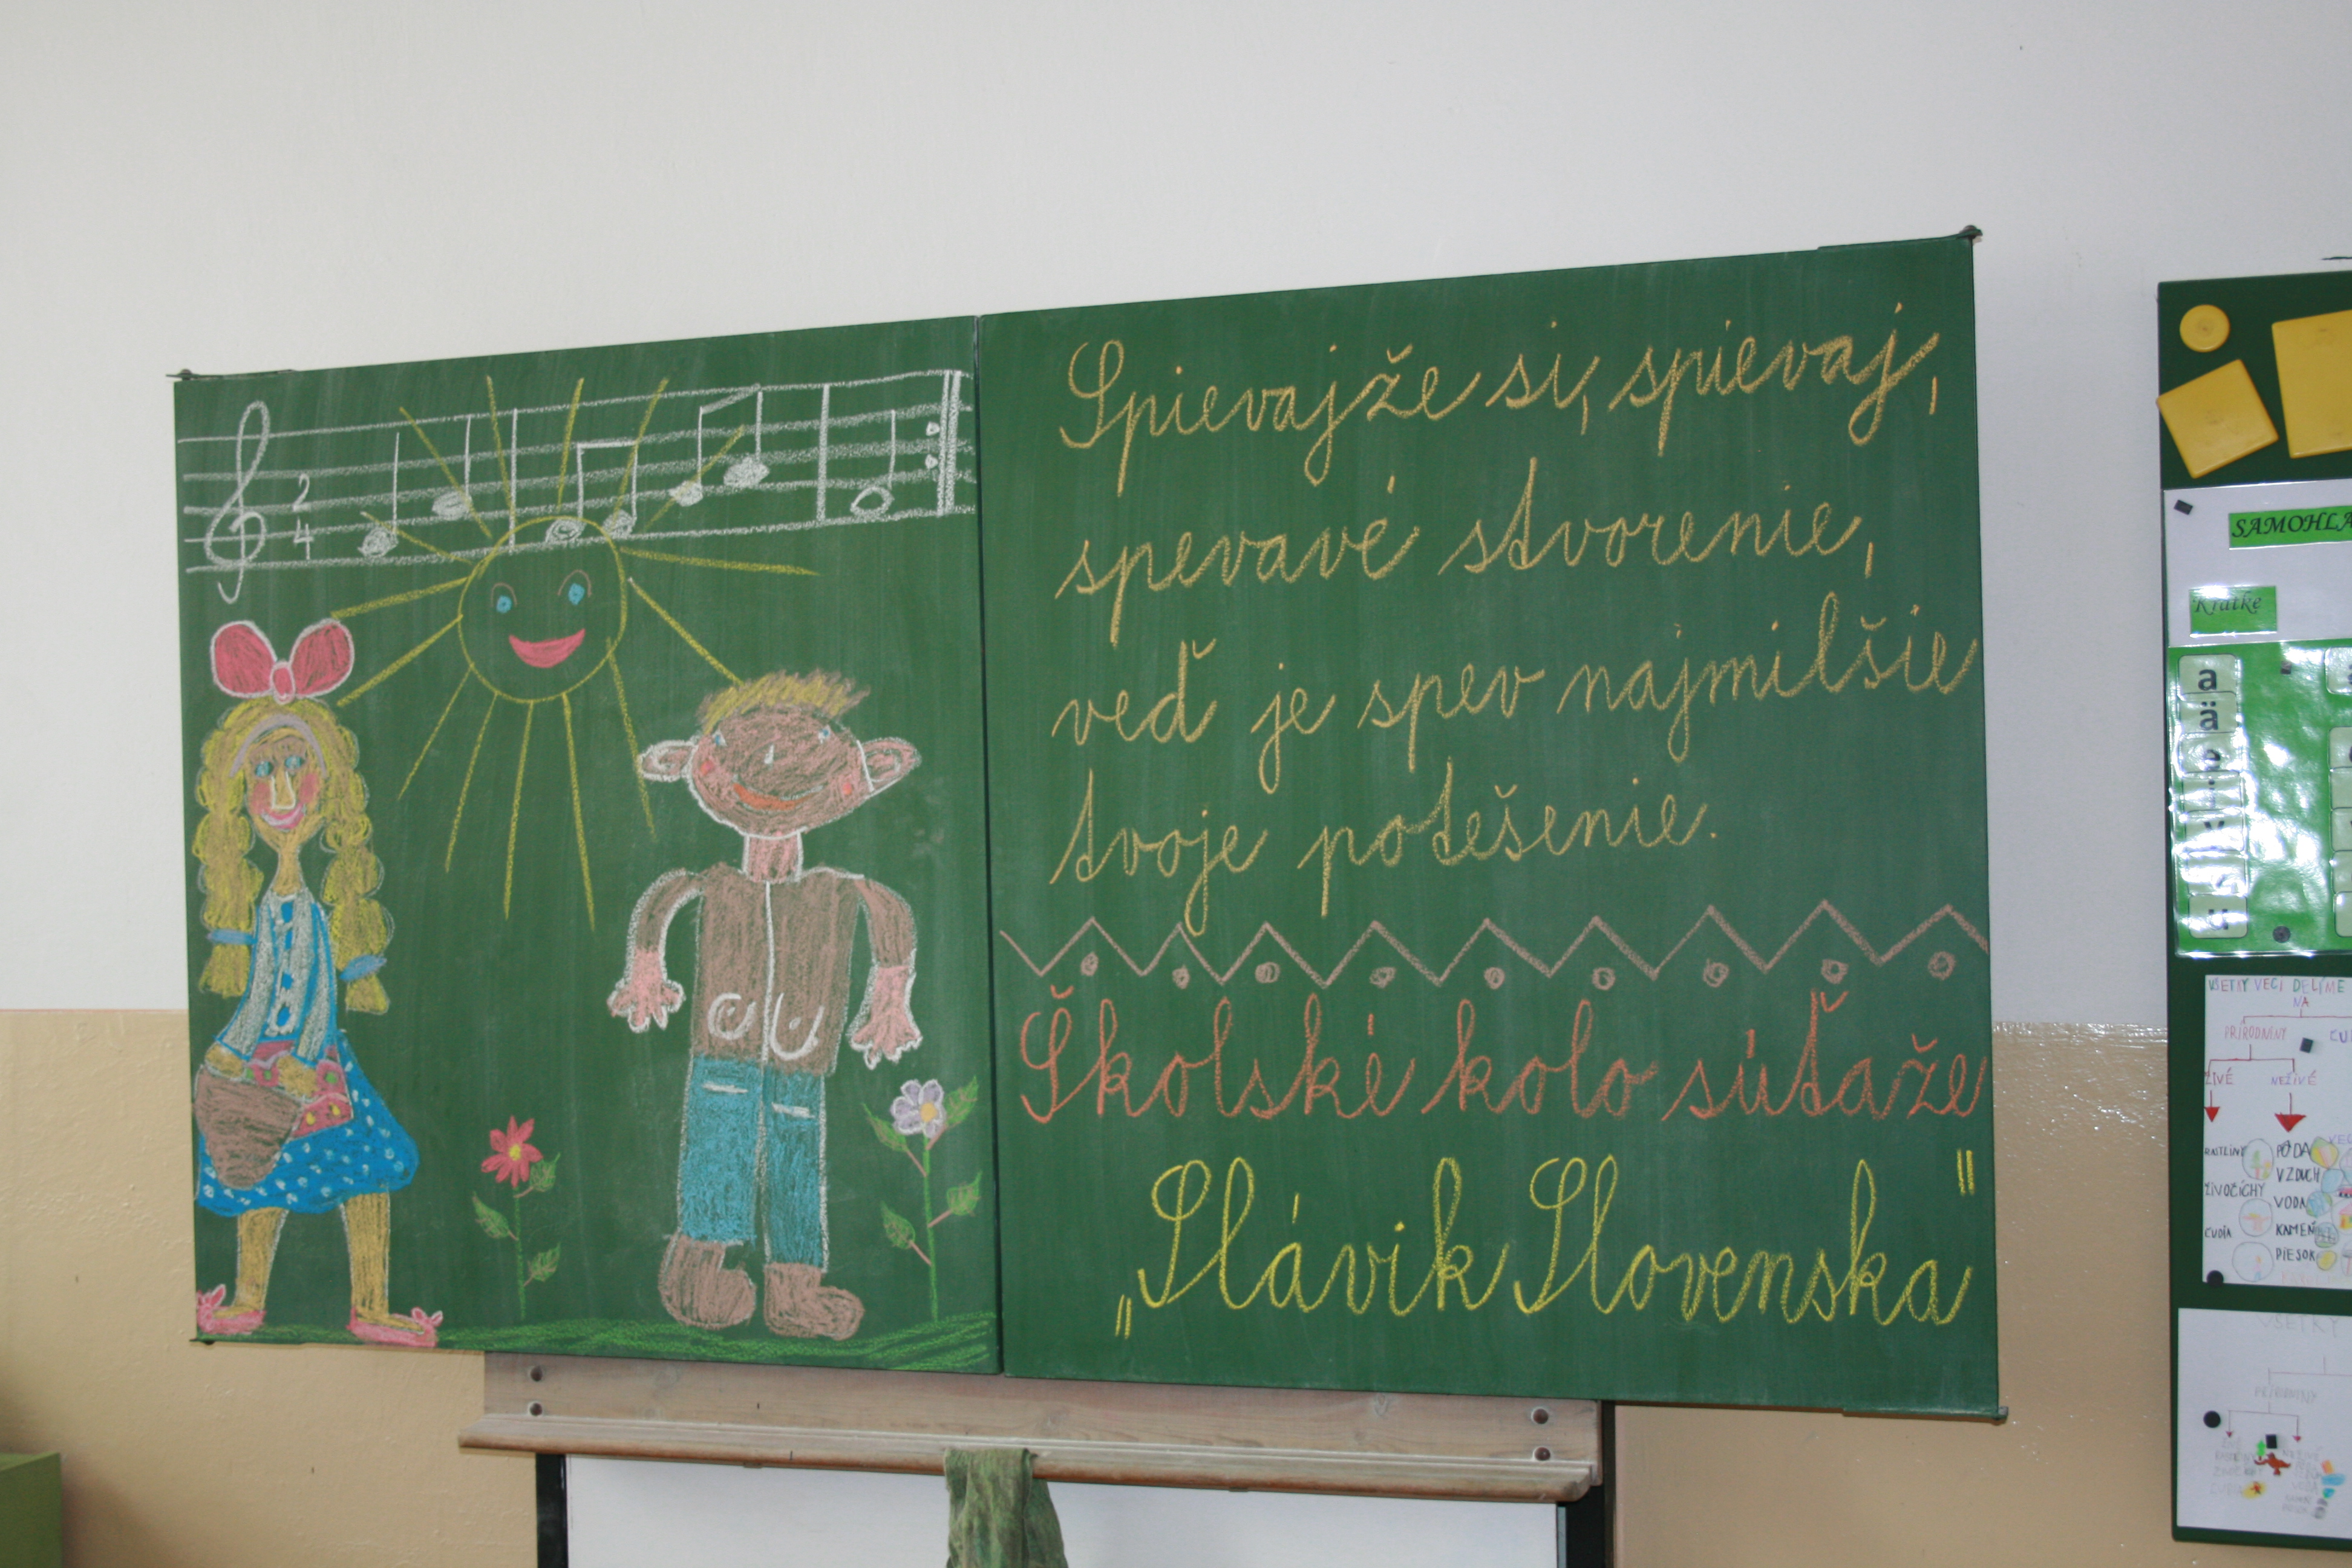 2
4
Spievajže si, spievaj,
spevavé stvorenie,
veď je spev najmilšie
tvoje potešenie.
Školské kolo súťaže
„Slávik Slovenska"
Krátke
a
ä
VŠETKY VECI DELÍME
NA
PRÍRODNINY
ŽIVÉ NEŽIVÉ
RASTLINY PÔDA
VZDUCH
ŽIVOČÍCHY VODA
ĽUDIA KAMEŇ
PIESOK
VŠETKY